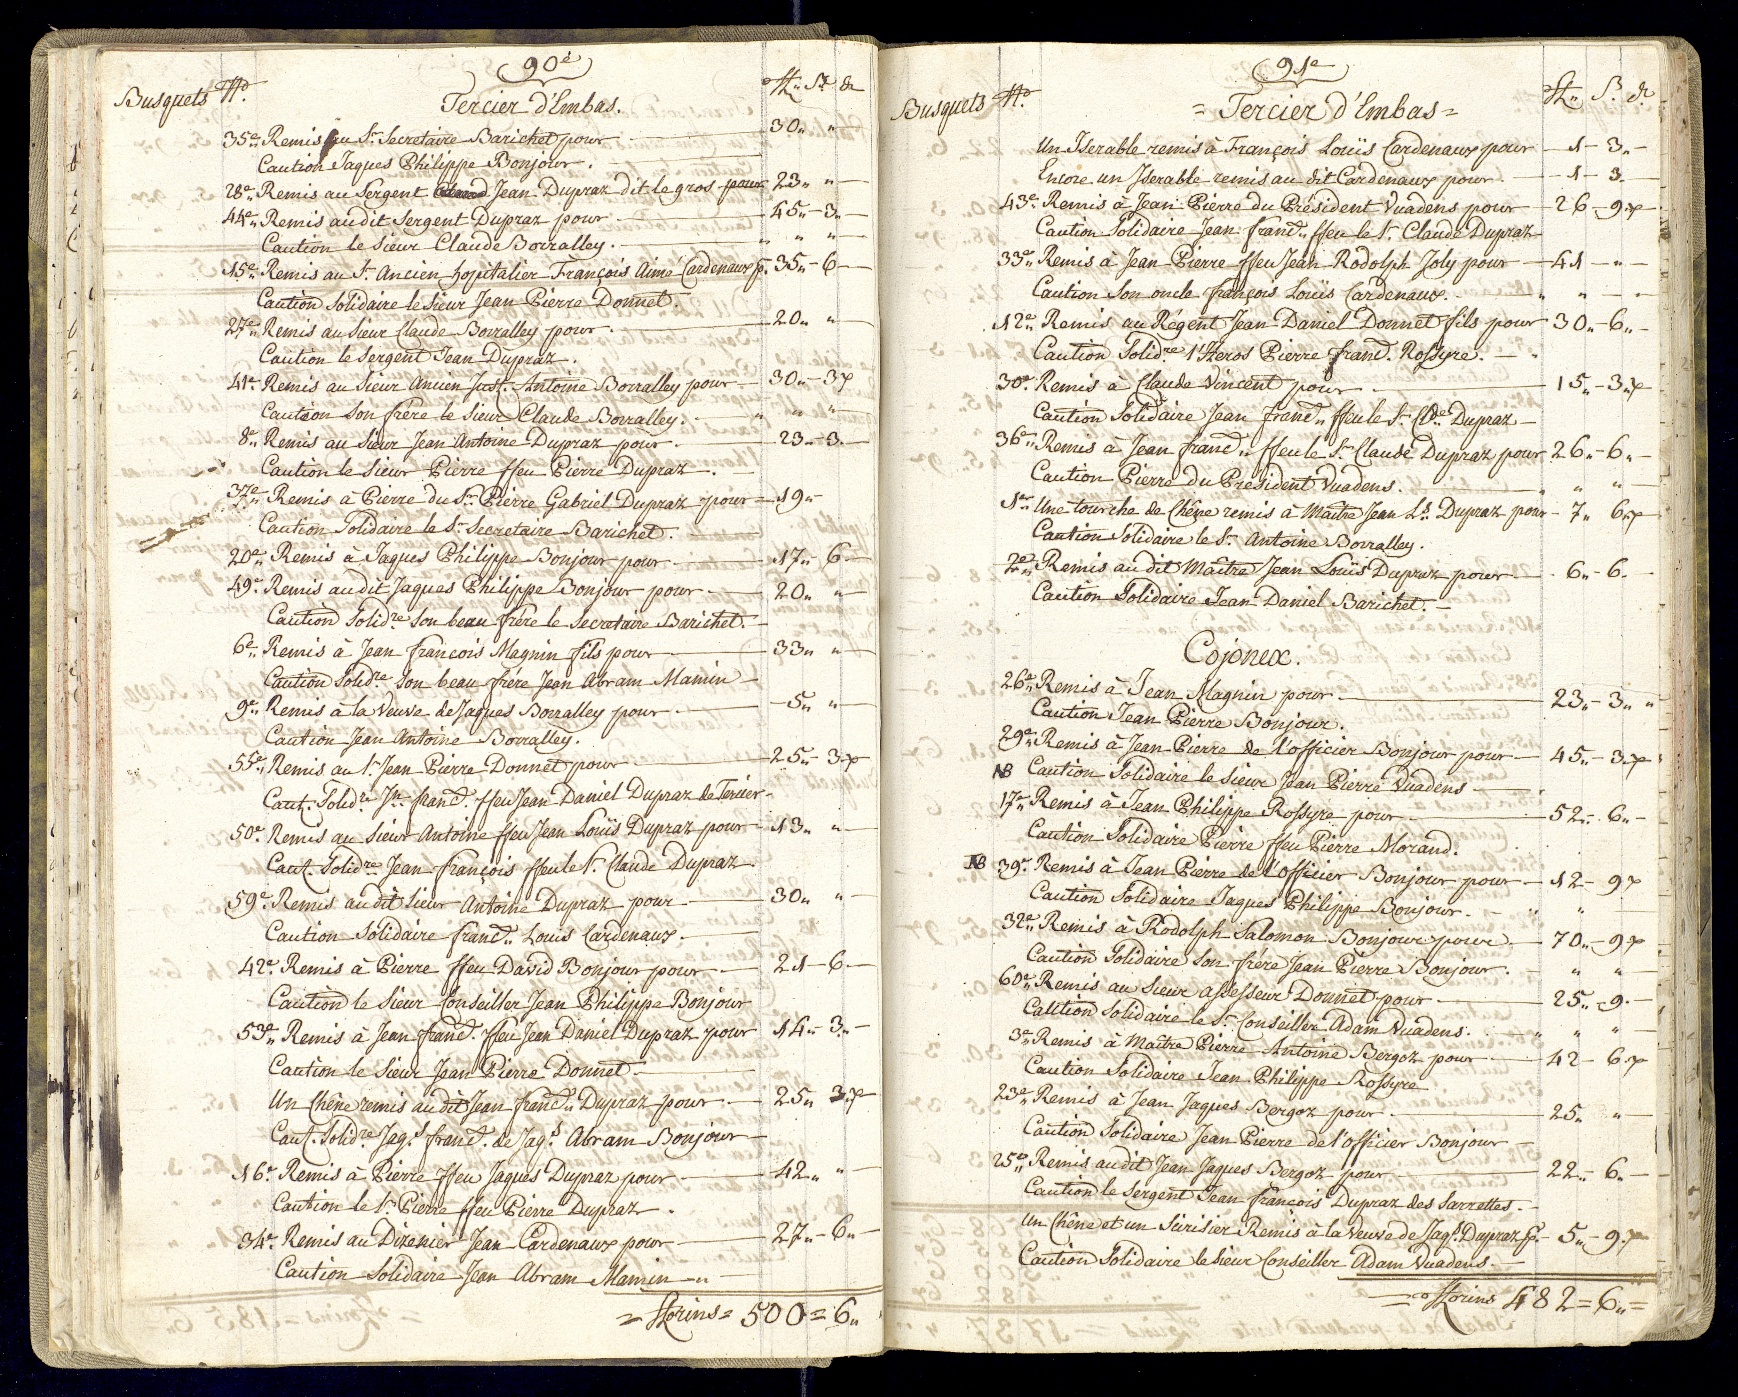 90e
Busquets No. Tercier d'Embas. fl.. S. d.
35e.. Remis au Sr. Secretaire Barichet pour 30.. ..
Caution Jaques Philippe Bonjour.
28e.. Remis au Sergent Jean Dupraz dit le gros pour 23.. ..
44e.. Remis audit Sergent Dupraz pour 45.. 3..
Caution le Sieur Claude Borralley. .. .. ..
15e.. Remis au Sr. Ancien hopitalier François Aimé Cardenaux p. 35.. 6
Caution Solidaire le Sieur Jean Pierre Donnet.
27e.. Remis au Sieur Claude Borralley pour 20.. ..
Caution le Sergent Jean Dupraz.
41e. Remis au Sieur Ancien Just. Antoine Borralley pour 30.. 3
Caution Son frère le Sieur Claude Borralley. .. .. ..
8e.. Remis au Sieur Jean Antoine Dupraz pour 23.. 3.
Caution le Sieur Pierre ffeu Pierre Dupraz.
37e.. Remis à Pierre du Sr. Pierre Gabriel Dupraz pour 19..
Caution Solidaire le Sr. Secretaire Barichet.
20e.. Remis à Jaques Philippe Bonjour pour 17.. 6
49e. Remis audit Jaques Philippe Bonjour pour 20.. ..
Caution Solidre Son beau frère le Secretaire Barichet.
6e.. Remis à Jean François Magnin fils pour 33.. ..
Caution Solidre Son beau frère Jean Abram Mamin
9e.. Remis à la Veuve de Jaques Borralley pour 5.. ..
Caution Jean Antoine Borralley.
55e.. Remis au Sr. Jean Pierre Donnet pour 25.. 3
Caut. Solidre Jn. franç. ffeu Jean Daniel Dupraz de Tercier
50e. Remis au Sieur Antoine ffeu Jean Louïs Dupraz pour 13.. ..
Caut. Solidre Jean François ffeu le Sr. Claude Dupraz
59e. Remis audit Sieur Antoine Dupraz pour 30.. ..
Caution Solidaire franç.. Louis Cardenaux.
42e. Remis à Pierre ffeu David Bonjour pour 21 6
Caution le Sieur Conseiller Jean Philippe Bonjour
53e.. Remis à Jean franç. ffeu Jean Daniel Dupraz pour 14.. 3..
Caution le Sieur Jean Pierre Donnet.
Un Chêne remis audit Jean franç.. Dupraz pour 25.. 3
Caut. Solidre Jaq.s franç. de Jaq.s Abram Bonjour
16e. Remis à Pierre ffeu Jaques Dupraz pour 42.. ..
Caution le Sr. Pierre ffeu Pierre Dupraz.
34e. Remis au Dizenier Jean Cardenaux pour 27.. 6..
Caution Solidaire Jean Abram Mamin
= fflorins = 500 = 6..
91e
Busquets No. = Tercier d'Embas = fl.. S. d.
Un Iserable remis à François Louïs Cardenaux pour 1 3..
Encore un Iserable remis au dit Cardenaux pour 1 3
43e. Remis à Jean Pierre du Président Vuadens pour 26 9
Caution Solidaire Jean franç.. ffeu le Sr. Claude Dupraz
33e.. Remis à Jean Pierre ffeu Jean Rodolph Joly pour 41 ..
Caution Son oncle François Louïs Cardenaux. .. .. ..
12e.. Remis au Régent Jean Daniel Donnet fils pour 30.. 6..
Caution Solidre Pierre franç. Rossyre.
30e. Remis à Claude Vincent pour 15.. 3
Caution Solidaire Jean franç.. ffeu le Sr. Clde. Dupraz
36e.. Remis à Jean franç.. ffeu le Sr. Claude Dupraz pour 26.. 6..
Caution Pierre du President Vuadens. .. .. ..
1er Une tourche de Chêne remis à Maître Jean Ls. Dupraz pour 7.. 6
Caution Solidaire le Sr. Antoine Borralley.
2e.. Remis au dit Maître Jean Louïs Dupraz pour 6.. 6.
Caution Solidaire Jean Daniel Barichet.
Cojonex.
26e.. Remis à Jean Magnin pour 23.. 3.. ..
Caution Jean Pierre Bonjour.
29e.. Remis à Jean Pierre de l'officier Bonjour pour 45.. 3
NB Caution Solidaire le Sieur Jean Pierre Vuadens
17e.. Remis à Jean Philippe Rossyre pour 52.. 6..
Caution Solidaire Pierre ffeu Pierre Morand.
NB 39e. Remis à Jean Pierre de l'officier Bonjour pour 12 9
Caution Solidaire Jaques Philippe Bonjour. .. ..
32e.. Remis à Rodolph Salomon Bonjour pour 70.. 9
Caution Solidaire Son frère Jean Pierre Bonjour. .. ..
60e.. Remis au Sieur assesseur Donnet pour 25.. 9.
Caution Solidaire le Sr. Conseiller Adam Vuadens. .. .. ..
3e.. Remis à Maître Pierre Antoine Bergoz pour 42 6
Caution Solidaire Jean Philippe Rossyre
23e.. Remis à Jean Jaques Bergoz pour 25.. ..
Caution Solidaire Jean Pierre de l'officier Bonjour
25e.. Remis au dit Jean Jaques Bergoz pour 22.. 6..
Caution le Sergent Jean François Dupraz des Sarrettes.
Un Chêne et un Sirisier Remis à la Veuve de Jaqs. Dupraz p. 5.. 9.
Caution Solidaire le Sieur Conseiller Adam Vuadens.
= fflorins 482 = 6.. =